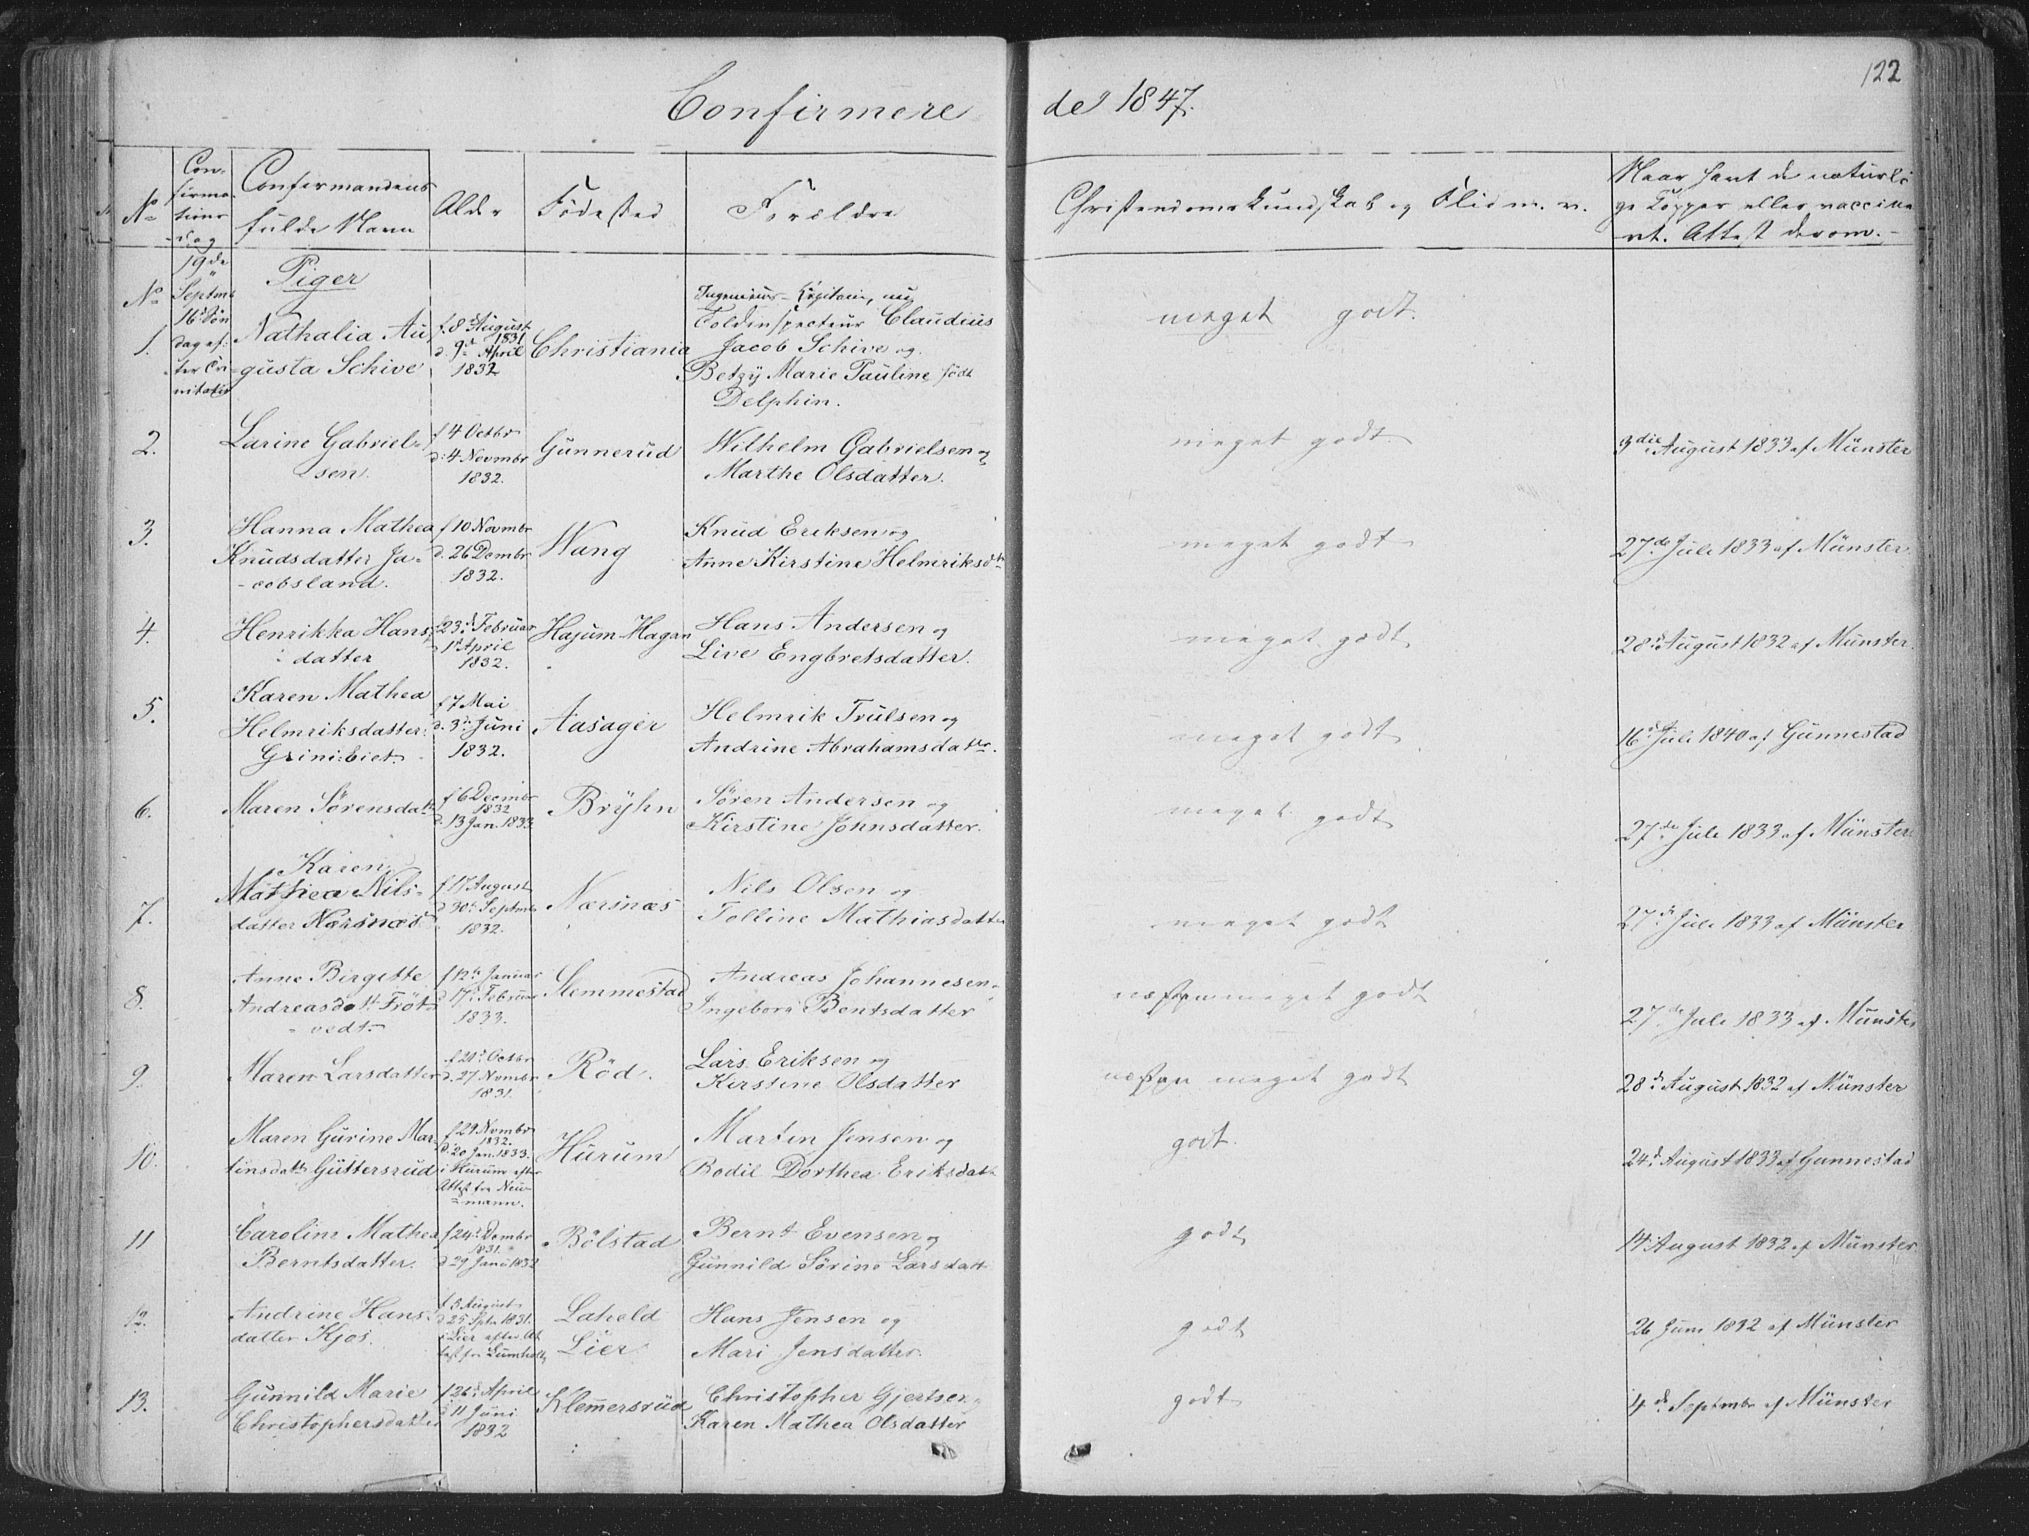 122
Confirmerede 1847.
No
Con-
firma-
tions
dag
Confirmandens
fulde Navn
Alder
Fødested
Forældre
Christendomskundskab og Flid m. v.
Naar havt de naturli
ge Kopper eller vaccine
rt. Attest derom.
19de
Septmb
16 Søn
dag ef-
ter Tri-
nitatis
No
Piger
1.
Nathalia Au-
gusta Schive
f. 8 August
1831
d. 9 April
1832
Christiania
Ingenieur-Kapitain, nu
Toldinspecteur Claudius
Jacob Schive og
Betzÿ Marie Pauline født
Delphin.
meget godt.
2.
Larine Gabriel-
sen.
f 4 Octbr
d. 4 Novmbr
1832.
Gunnerud
Wilhelm Gabrielsen og
Marthe Olsdatter.
meget godt
3die August 1833 af Münster
3.
Hanna Mathea
Knudsdatter Ja-
cobsland.
f 10 Novmbr
d. 26 Dcmbr
1832.
Wang
Knud Eriksen og
Anne Kirstine Helmriksdtr
meget godt
27de Juli 1833 af Münster
4.
Henrikka Hans-
datter
f 23 Februar
d 1 April
1832.
Hajum Hagan
Hans Andersen og
Live Engbretsdatter.
meget godt
28 August 1832 af Münster.
5.
Karen Mathea
Helmriksdatter
Grini:biet.
f 7 Mai
d. 3 Juni
1832.
Aasager
Helmrik Trulsen og
Andrine Abrahamsdatter.
meget godt
16 Juli 1840 af Gunnestad
6.
Maren Sørensdatt
f 6 Decmbr
1832
d. 13 Jan. 1833
Brÿhn
Søren Andersen og
Kirstine Johnsdatter.
meget godt
27de Juli 1833 af Münster
7.
Karen
Mathea Nils-
datter Nærsnæs
f 17 August
d 30 Septmb
1832.
Nærsnæs
Nils Olsen og
Tolline Mathiasdatter
meget godt
27de Juli 1833 af Münster
8.
Anne Birgitte
Andreasdatt Frøt-
vedt.
f 12 Januar
d 17 Februar
1833.
Slemmestad
Andreas Johannesen
Ingebor Bentsdatter
næsten meget godt
27de Juli 1833 af Münster
9.
Maren Larsdatter
f 21 Octbr
d. 27 Novmbr
1831.
Röd.
Lars Eriksen og
Kirstine Olsdatter
næsten meget godt
28de August 1832 af Münster
10.
Maren Gurine Mar-
tinsdatt Guttersrud
f 29 Novmbr
1832.
d. 20 Jan. 1833.
i Hurum efter
Attest fra Neu-
mann.
Hurum
Martin Jensen og
Bodil Dorthea Eriksdatt
godt.
24 August 1833 af Gunnestad
11
Caroline Mathea
Berntsdatter.
f 24 Dcmbr
1831.
d 29 Janu 1832
Bölstad
Bernt Evensen og
Gunnild Sørine Larsdatt
godt
14 August 1832 af Münster
12.
Andrine Hans-
datter Kjos.
f 5 August
d 25 Sptr 1831.
i Lier efter At
test fra Lumholtz
Laheld
Lier
Hans Jensen og
Mari Jensdatter.
godt
26 Juni 1832 af Münster
13.
Gunnild Marie
Christophersdatter
f 26 April
d 11 Juni
1832
Klemmersrud
Christopher Gjertsen
Karen Mathea Olsdatter
godt
4de Septmbr af Münster